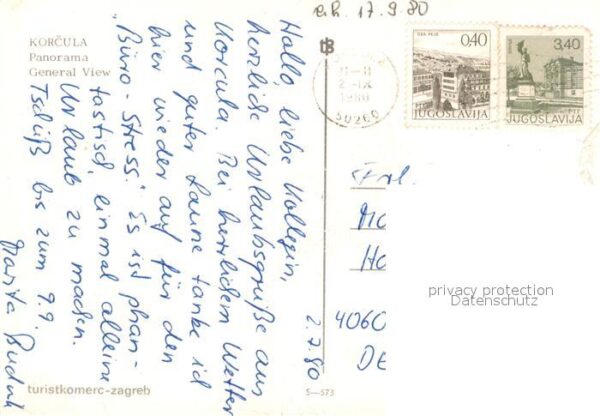 e.h. 17.9.80
KORČULA
Panorama
General View
Hallo, liebe Kollegin,
herzliche Urlaubsgrüße aus
Korcula. Bei herrlichem Wetter
und guter Laune tanke ich
hier wieder auf für den
"Büro-Stress". Es ist phan-
tastisch, einmal alleine
Urlaub zu machen.
Tschüß bis zum 9.9.
2.9.80
turistkomerc-zagreb
S—573
1980
50260
0,40
JUGOSLAVIJA
3,40
JUGOSLAVIJA
Frl.
Mo
Ho
4060
DE
privacy protection
Datenschutz